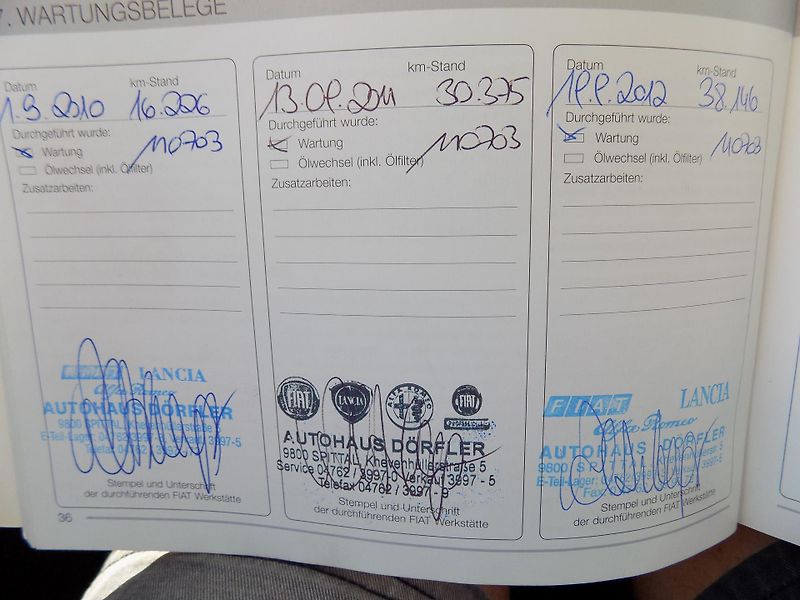 7. WARTUNGSBELEGE
Datum
km-Stand
1.9.2010 16.226
Durchgeführt wurde:
Wartung
110703
Ölwechsel (inkl. Ölfilter)
Zusatzarbeiten:
FIAT LANCIA
Alfa Romeo
AUTOHAUS DÖRFLER
9800 SPITTAL, Khevenhüllerstraße 5
E-Teil-Lager: 04762/3997-5
Telefax 04762
Stempel und Unterschrift
der durchführenden FIAT Werkstätte
36
Datum
km-Stand
30.375
Durchgeführt wurde:
Wartung
110703
Ölwechsel (inkl. Ölfilter)
Zusatzarbeiten:
FIAT LANCIA ALFA ROMEO FIAT
AUTOHAUS DÖRFLER
9800 SPITTAL, Khevenhüllerstraße 5
Service 04762 / 3997-0 Verkauf 3997 - 5
Telefax 04762 / 3997 - 9
Stempel und Unterschrift
der durchführenden FIAT Werkstätte
Datum
km-Stand
2012 38.146
Durchgeführt wurde:
Wartung
110703
Ölwechsel (inkl. Ölfilter)
Zusatzarbeiten:
FIAT LANCIA
Alfa Romeo
AUTOHAUS DÖRFLER
9800 Khevenhüllerstr. 5
E-Teil-Lager: 3997-5
Stempel und Unterschrift
der durchführenden FIAT Werkstätte